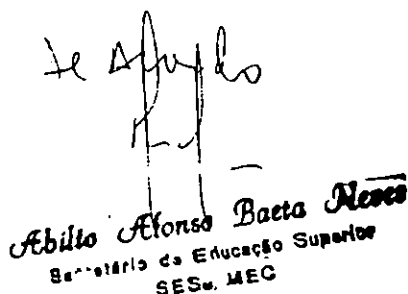 De Acordo
Abilio Afonso Baeta Neves
Secretário de Educação Superior
SESu, MEC